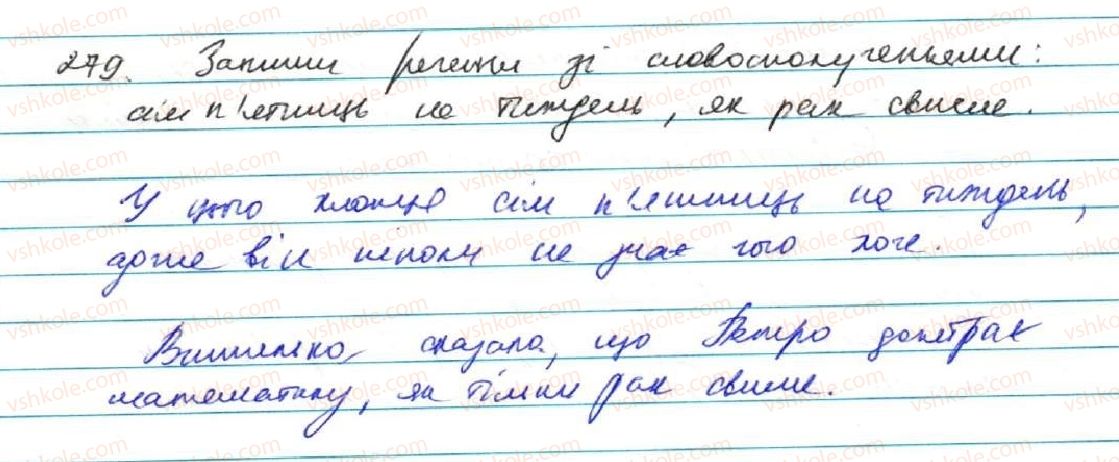 279. Запиши речення зі словосполученнями:
сім п'ятниць на тиждень, як рак свисне.
У цього хлопця сім п'ятниць на тиждень,
адже він ніколи не знає чого хоче.
Вчителька сказала, що Петро
математику, як тільки рак свисне.